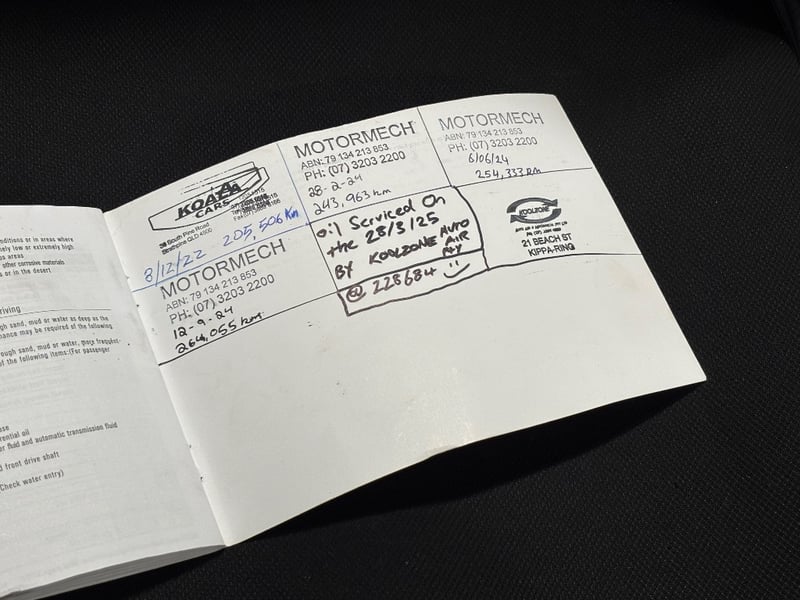 nditions or in areas where
tely low or extremely high
gs areas
other corrosive materials
s or in the desert
riving
ugh sand, mud or water as deep as the
nance may be required of the following
rough sand, mud or water, more frequent-
of the following items:(For passenger
ase
rential oil
er fluid and automatic transmission fluid
d front drive shaft
Check water entry)
KOALA
CARS
South Pine Road
Strathpine QLD 4500
8/12/22 205,506 Km
MOTORMECH
ABN: 79 134 213 853
PH: (07) 3203 2200
28-2-24
243,963 km
MOTORMECH
ABN: 79 134 213 853
PH: (07) 3203 2200
6/06/24
254,333 km
MOTORMECH
ABN: 79 134 213 853
PH: (07) 3203 2200
12-9-24
264,055 km
oil Serviced On
the 28/3/25
BY KOOLZONE AUTO
AIR
@ 228684
KOOLZONE
21 BEACH ST
KIPPA-RING